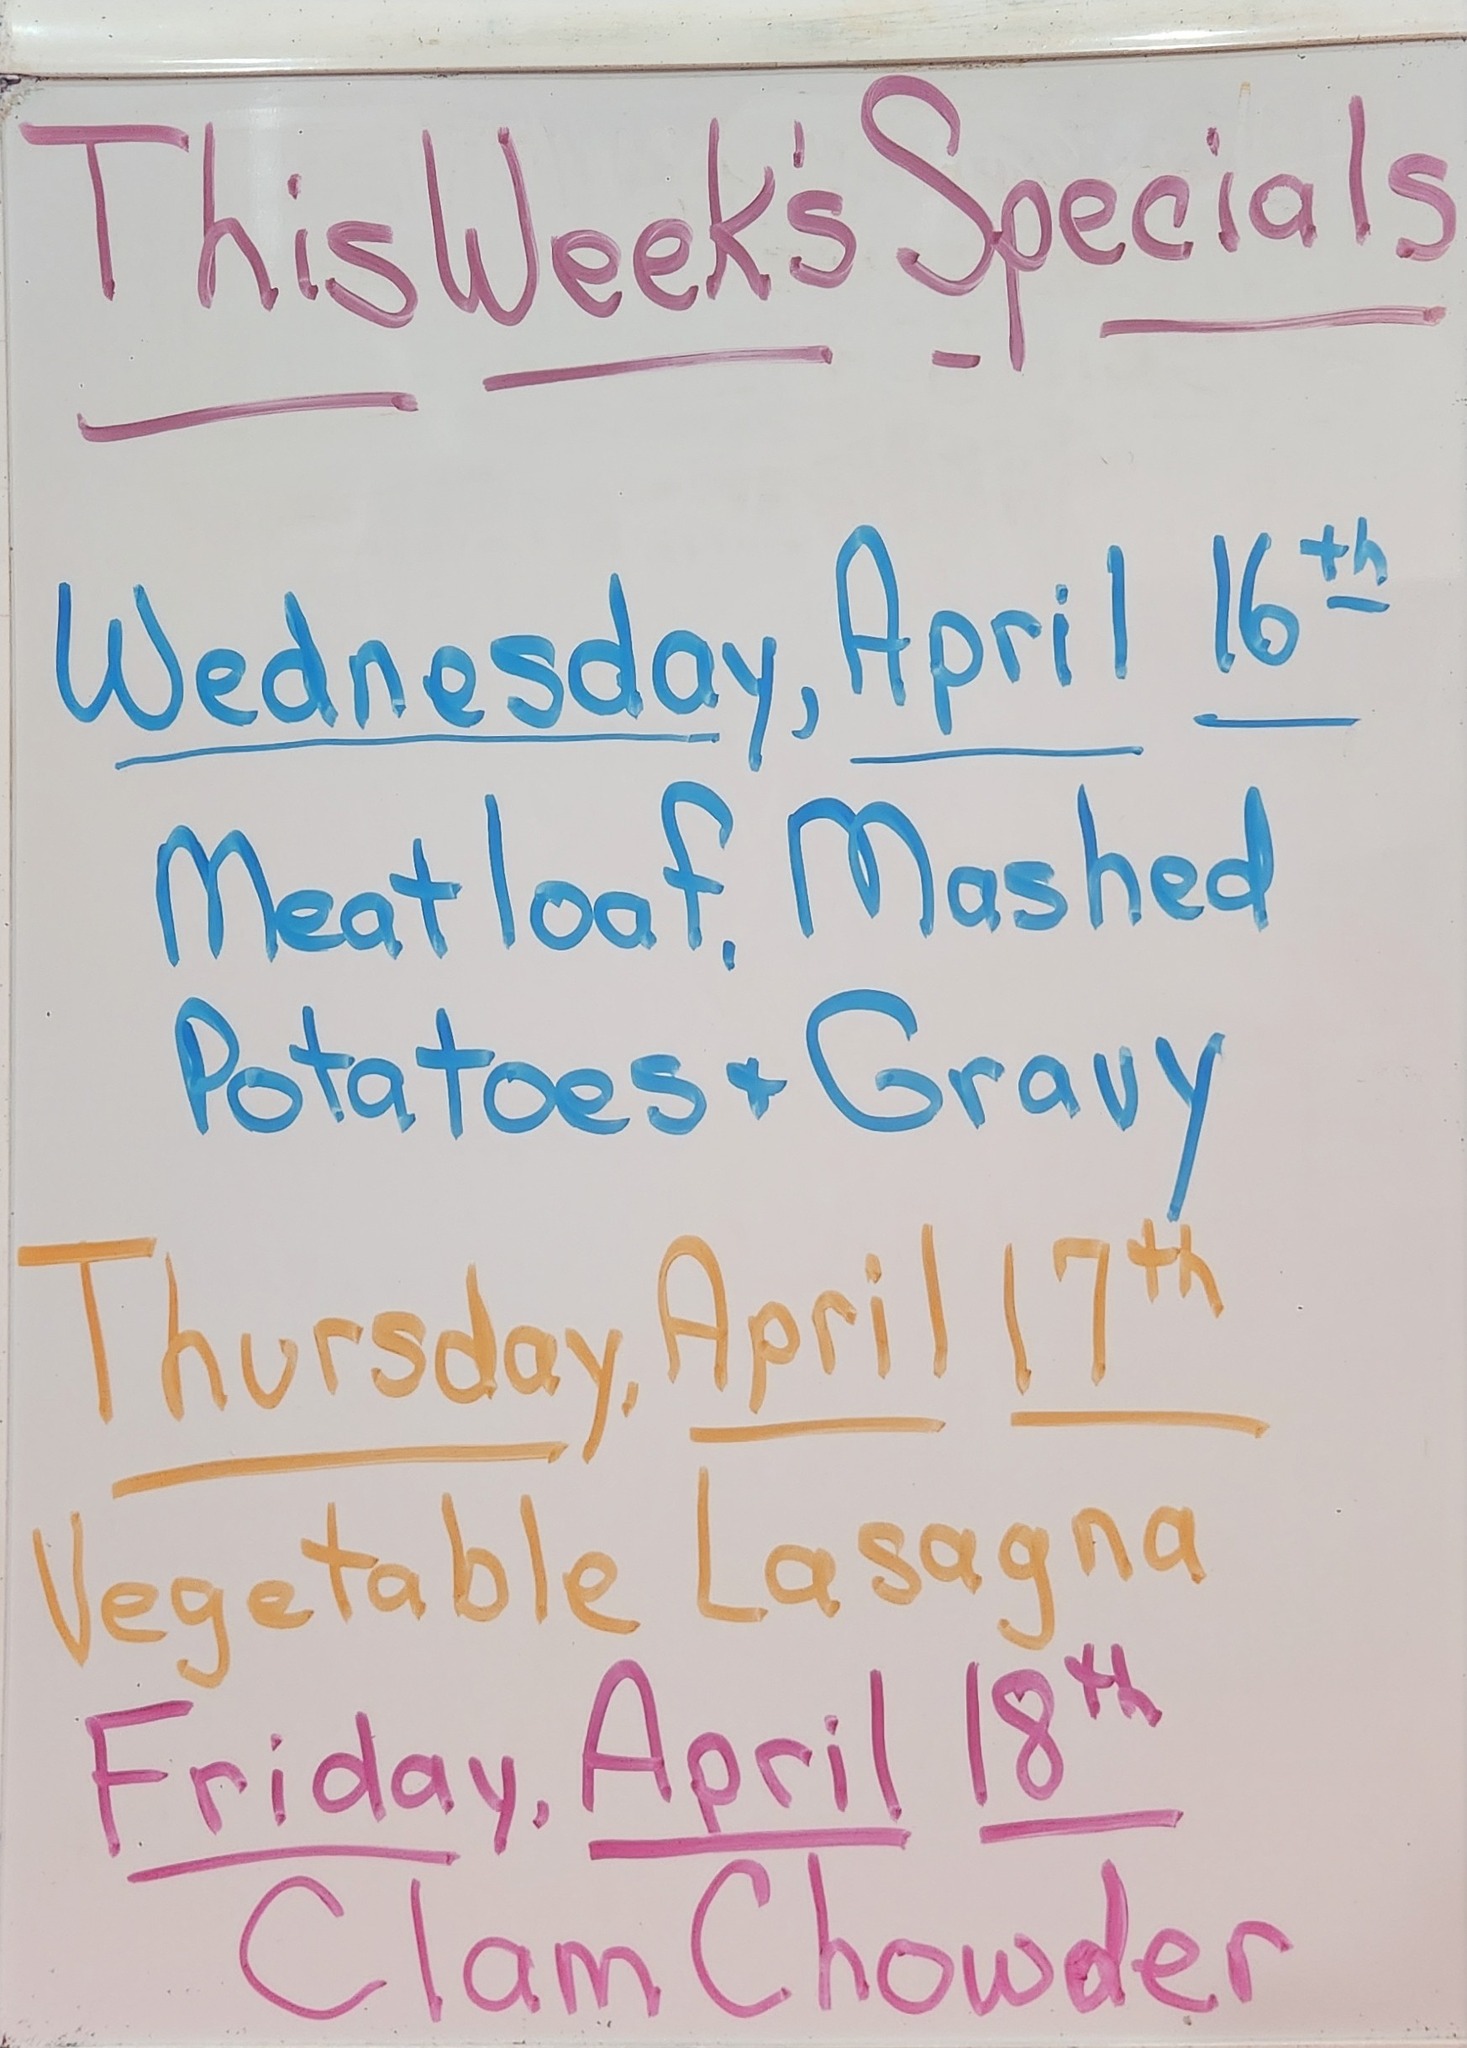 This Week's Specials
Wednesday, April 16th
Meatloaf, Mashed
Potatoes + Gravy
Thursday, April 17th
Vegetable Lasagna
Friday, April 18th
Clam Chowder